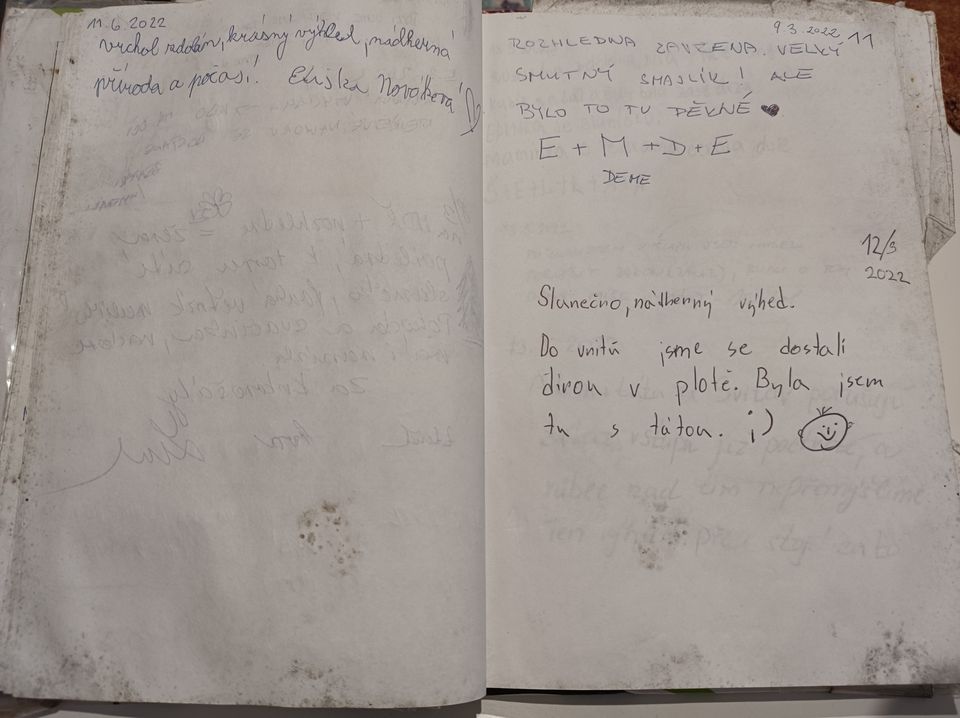 11.6.2022
vrchol zdolán, krásný výhled, nádherná
příroda a počasí! Eliška Nováková
9.3.2022
11
ROZHLEDNA ZAVŘENA. VELKÝ
SMUTNÝ SMAJLÍK! ALE
BYLO TO TU PĚKNÉ ♥
E + M + D + E
DEME
12/3
2022
Slunečno, nádherný výhed.
Do vnitů jsme se dostali
dírou v plotě. Byla jsem
tu s tátou. ;)